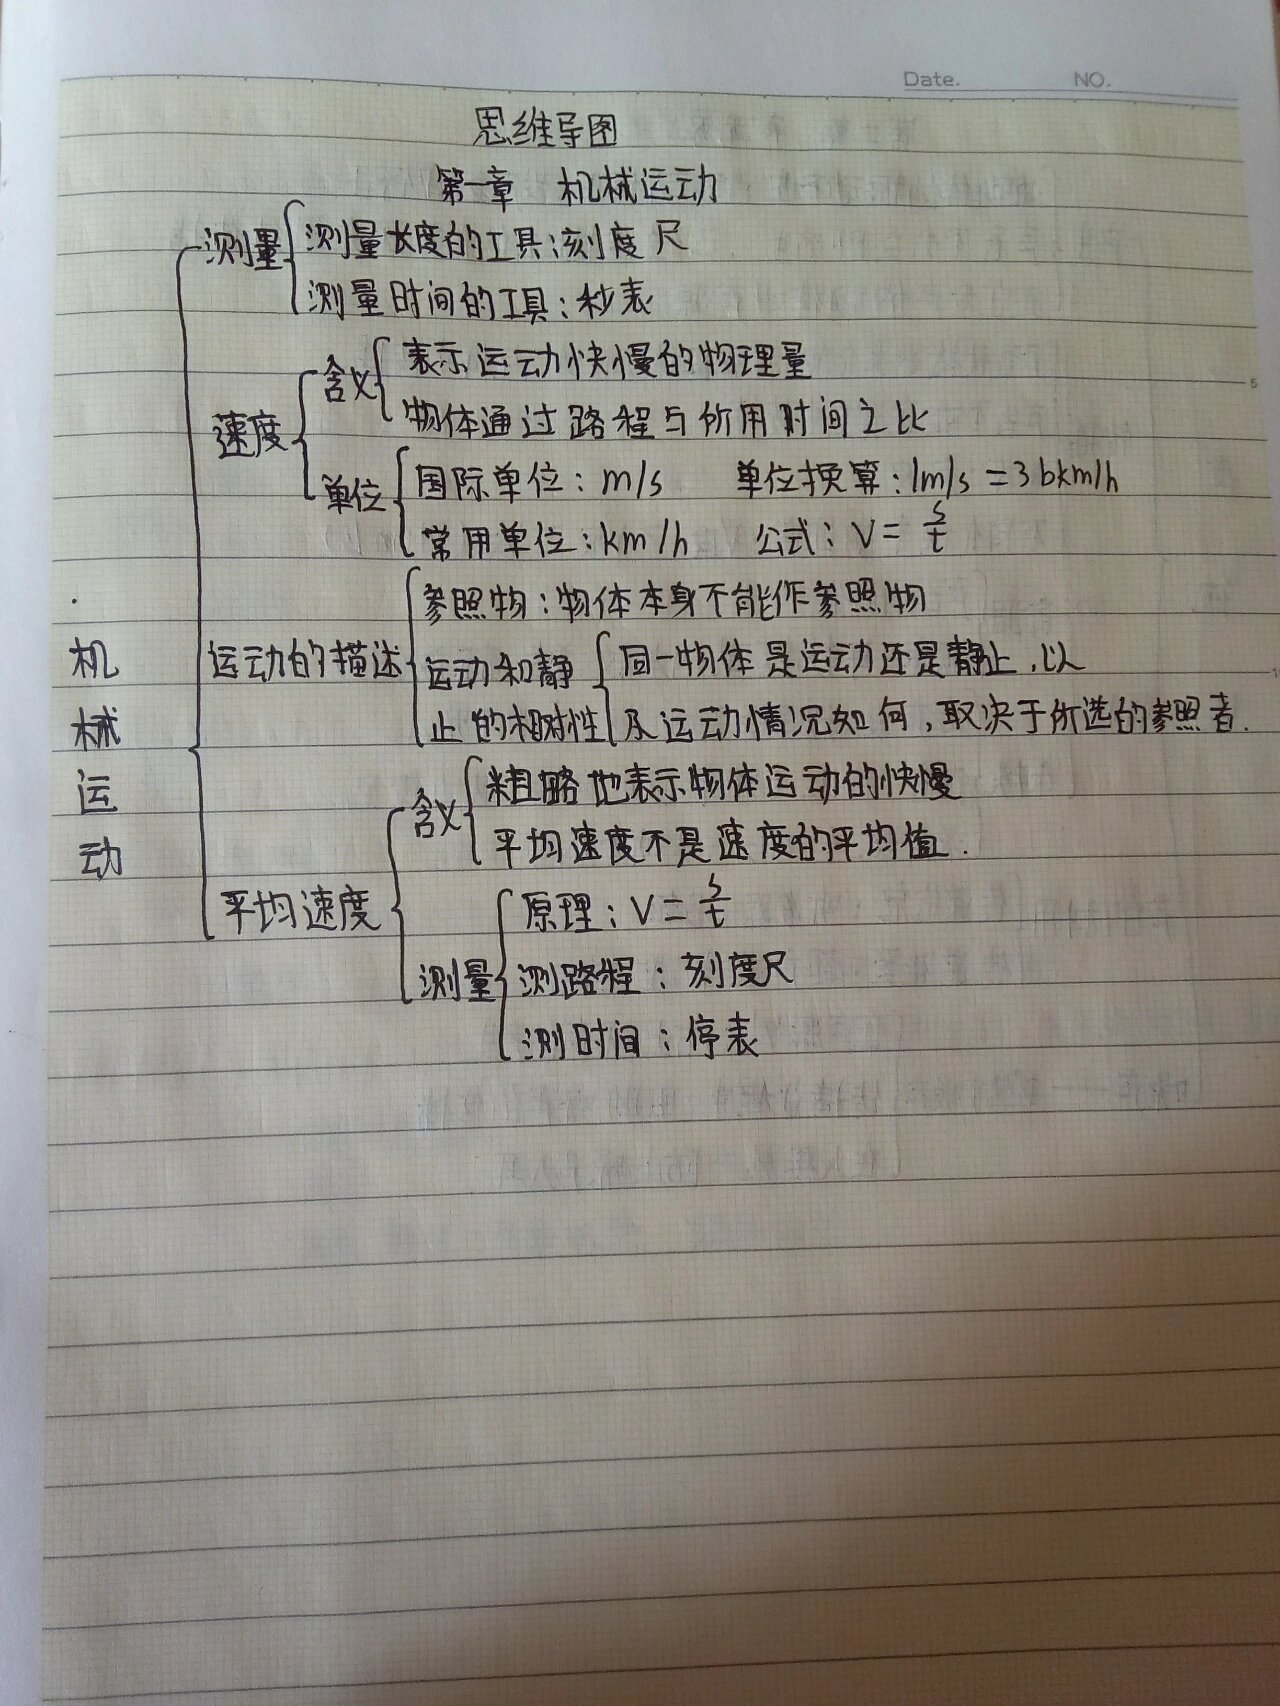 Date. NO.
思维导图
第一章 机械运动
测量 测量长度的工具:刻度尺
测量时间的工具:秒表
速度 含义 表示运动快慢的物理量
物体通过路程与所用时间之比
单位 国际单位:m/s 单位换算:1m/s=36km/h
常用单位:km/h 公式:V=s/t
运动的描述 参照物:物体本身不能作参照物
运动和静止的相对性 同一物体是运动还是静止,以
及运动情况如何,取决于所选的参照者.
平均速度 含义 粗略地表示物体运动的快慢
平均速度不是速度的平均值.
测量 原理:V=s/t
测路程:刻度尺
测时间:停表
机械运动
5